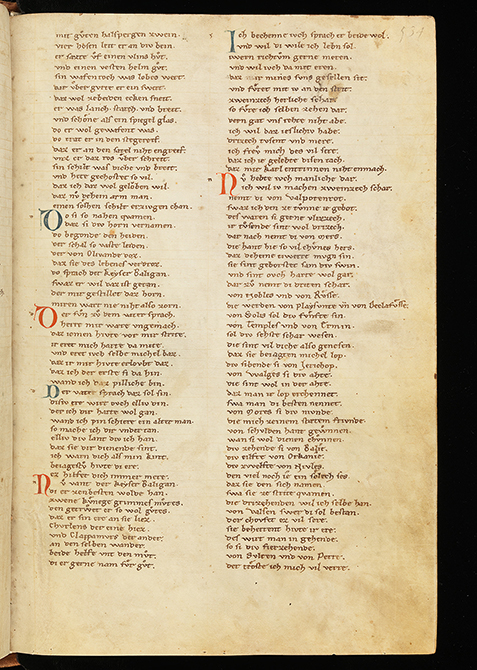 mit gůten halspergen zwein.
vier hosen leit er an div bein.
er sazte vf einen vlins hůt.
vnd einen vesten helm gůt.
sin wafen roch was lobes wert.
dar vber gurte er ein swert.
daz wol ze beiden ecken sneit.
er was lanch starch vnd breit.
vnd schone als ein spiegel glas.
do er wol gewafent was.
do trat er in den stegereif.
daz er an den satel niht engreif.
vnz er daz ros vber schreit.
sin schilt was diche vnd breit.
vnd hete gechostet so vil.
daz ich daz wol geloben wil.
daz nv̊ dehein arm man.
einen solhen schilt erzivgen chan.
Do si so nahen quamen.
daz si div horn vernamen.
do begonde den heiden.
der schal so witen leiden.
der von Olivande dez.
daz sie des lebenes verdroz.
do sprach der keyser Baligan.
swaz er wil daz ist getan.
der mit gestillet daz horn.
miten wart nie niht also zorn.
Der svn zv dem vater sprach.
herre mir wære vngemach.
daz iemen hivte vor mir strite.
ir eret mich harte da mite.
vnd eret ivch selbe michel baz.
daz ir mir hivte erlovbt daz.
daz ich der erste si da hin.
wand ich daz pilliche bin.
Der vater sprach daz sol sin.
disiv ere wirt ovch elliv din.
der ich dir harte wol gan.
wand ich pin schiere ein alter man.
so mache ich dir vndertan.
elliv div lant div ich han.
daz sie dir dienende sint.
ich warn dich als min kint.
beiagestv hivte di ere.
ez hilfet dich immer mere.
Nv̊ vant der keyser Baligan.
di er ze den besten wolde han.
zwene kvnege grimmes mvtes.
den getrvete er so wol gůtes.
daz er sin ere an sie liez.
Chvrlens der eine hiez.
vnd Clappamvrs der ander.
an den selben wander.
beide helfe vnt den mv̊t.
di er gerne nam fur gůt.
Ich bechenne ivch sprach er beide wol.
vnd wil di wile ich lebn sol.
iwern richtvm gerne meren.
vnd wil ivch da mit eren.
daz ir mines svns gesellen sit.
vnd fůret mit iv an den strit.
zweinzech herliche schar.
so fůre ich selben zehen dar.
dern gat vns zehne niht abe.
ich wil daz ieslichiv habe.
drizech tvsent vnd mere.
ich frev mich des vil sere.
daz ich ie gelebte disen tach.
daz mir karl entrinnen niht enmach.
Nv̊ hebte ivch manliche dar.
ich wil iv machen zweinzech schar.
nemt di von valpotenrot.
swaz ich den ze tv̊nne ie gebot.
des waren si gerne vlizzech.
ir tvsende sint wol drizech.
dar nach nemt di von Mers.
die hant hie so vil chv̊nes hers.
daz deheine tiverre mvgn sin.
sie sint geborstet sam div swin.
vnd sint ovch harte wol gar.
dar zv̊ nemt di driten schar.
von Nobles vnd von Rvsse.
die werden von Playsvnte vn̄ von Beclafvsse.
von Dolis sol div fvnfte sin.
von Temples vnd von Ermin.
sol div sehste schar wesen.
die sint vil diche also genesen.
daz sie beiagten michel lop.
div sibende si von Jerichop.
von Walges si div ahte.
die sint wol in der ahte.
daz man ir lop erchennet.
swa man di besten nennet.
von Mores si div nivnde.
die mich ze einem stæten frivnde.
von schvlden hant gewnnen.
wan si wol dienen chvnnen.
div zehende si von Balie.
div eilfte von Orkanie.
div zwelfte von Nivles.
den viel noch ie ein solech les.
daz sie den sich namen.
swa sie ze strite quamen.
die drizehenden wil ich selbe han.
von valsen swer di sol bestan.
der chovfet ez vil sere.
sie behertent hivte ir ere.
des wirt man in gehende.
so si div fierzehende.
von Svlten vnd von Perre.
der trœste ich mich vil verre.